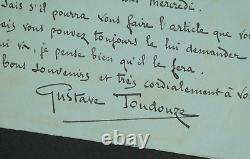 bon Mercredi.
sais s'il pourra vous faire l'article que vou
ais vous pouvez toujours le lui demander
ui va, je pense bien qu'il le fera.
bons souvenirs et très cordialement à vo
Gustave Toudouze